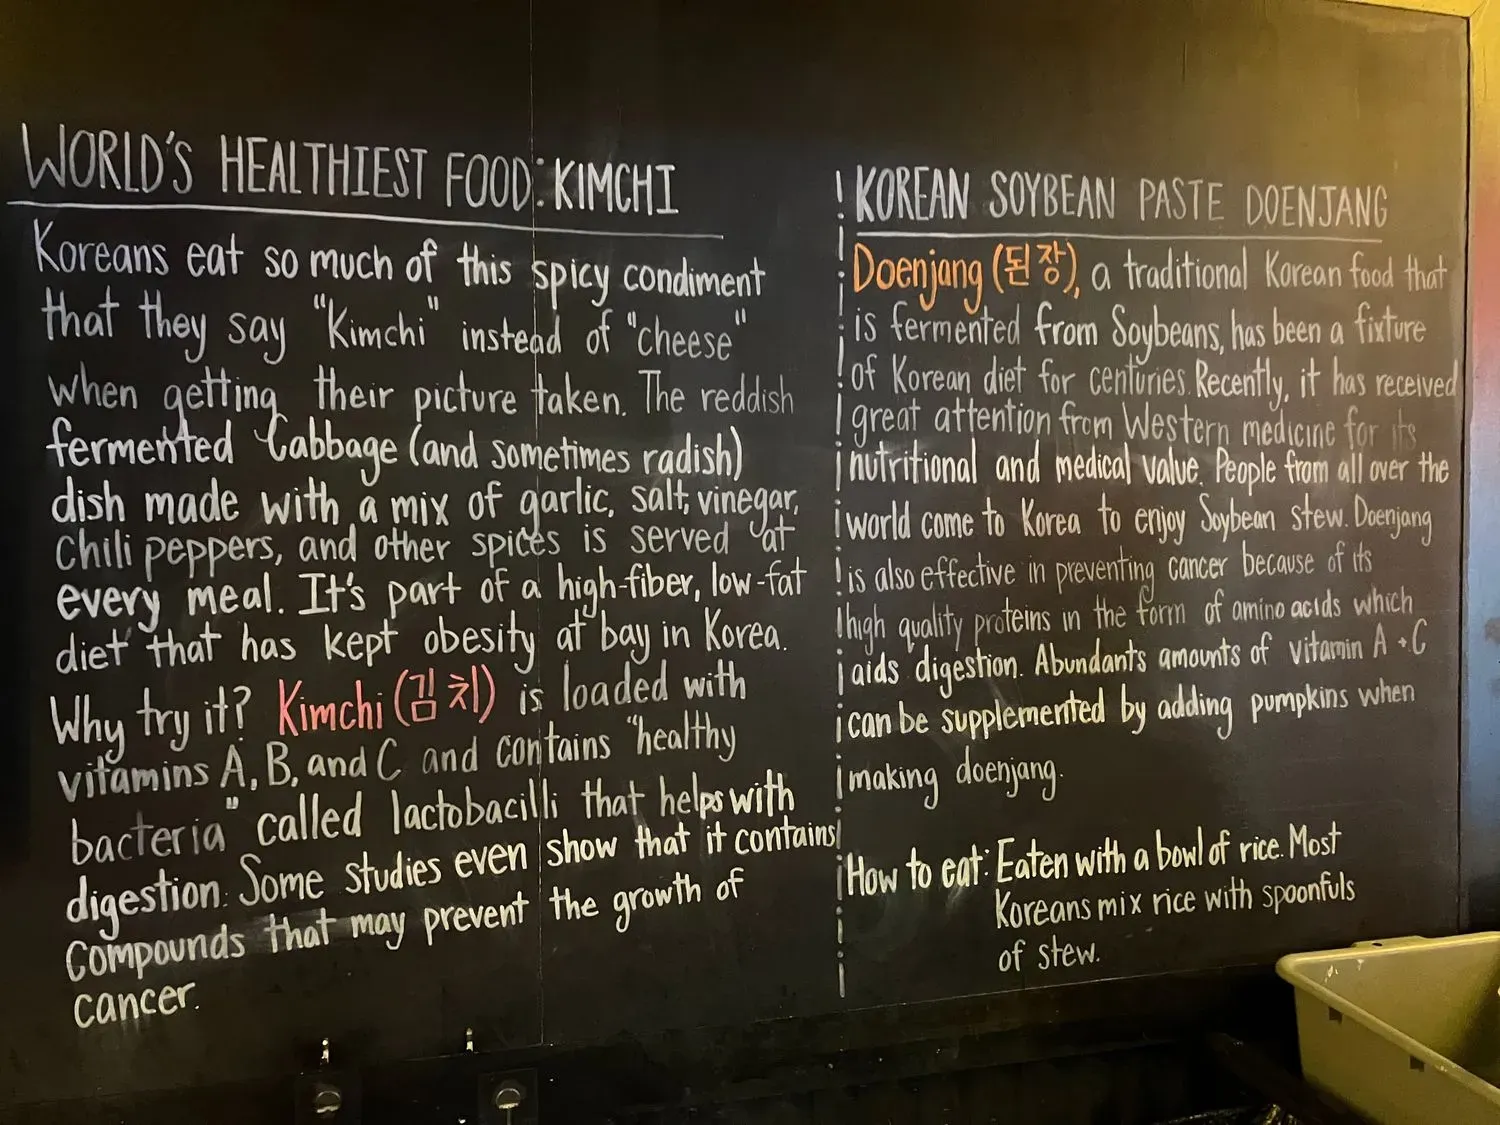 WORLD'S HEALTHIEST FOOD: KIMCHI
Koreans eat so much of this spicy condiment
that they say "Kimchi" instead of "cheese"
when getting their picture taken. The reddish
fermented Cabbage (and sometimes radish)
dish made with a mix of garlic, salt, vinegar,
chili peppers, and other spices is served at
every meal. It's part of a high-fiber, low-fat
diet that has kept obesity at bay in Korea.
Why try it? Kimchi (김치) is loaded with
vitamins A, B, and C and contains "healthy
bacteria" called lactobacilli that helps with
digestion. Some studies even show that it contains
compounds that may prevent the growth of
cancer.
KOREAN SOYBEAN PASTE DOENJANG
Doenjang (된장), a traditional Korean food that
is fermented from Soybeans, has been a fixture
of Korean diet for centuries. Recently, it has received
great attention from Western medicine for its
nutritional and medical value. People from all over the
world come to Korea to enjoy Soybean stew. Doenjang
is also effective in preventing cancer because of its
high quality proteins in the form of amino acids which
aids digestion. Abundants amounts of vitamin A + C
can be supplemented by adding pumpkins when
making doenjang.
How to eat: Eaten with a bowl of rice. Most
Koreans mix rice with spoonfuls
of stew.